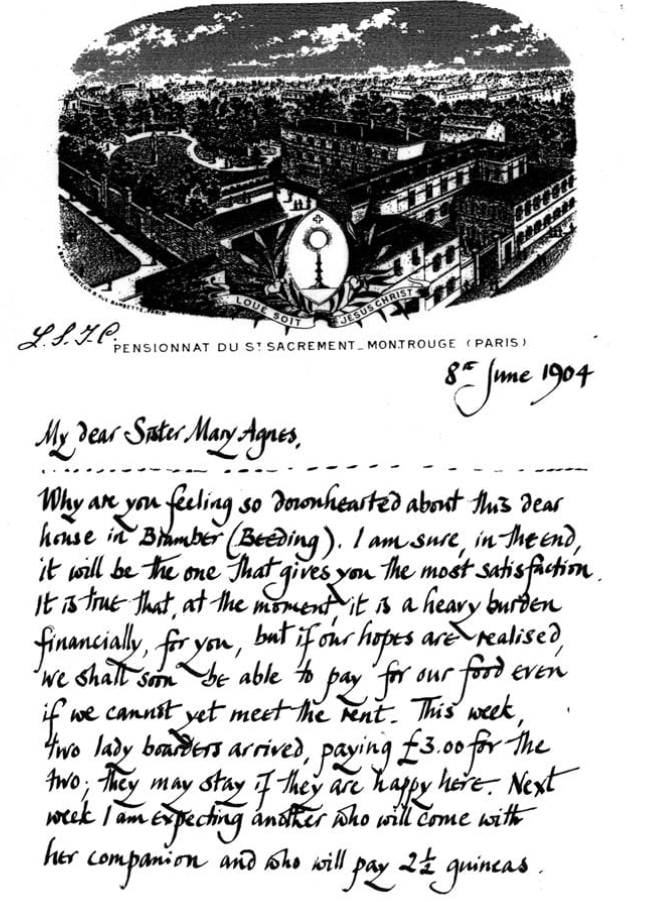 LOUÉ SOIT JÉSUS CHRIST
L.S.J.C.
PENSIONNAT DU ST SACREMENT_MONTROUGE (PARIS)
8th June 1904
My dear Sister Mary Agnes,
Why are you feeling so downhearted about this dear
house in Bramber (Beeding). I am sure, in the end,
it will be the one that gives you the most satisfaction.
It is true that, at the moment, it is a heavy burden
financially, for you, but if our hopes are realised,
we shall soon be able to pay for our food even
if we cannot yet meet the rent. This week,
two lady boarders arrived, paying £3.00 for the
two; they may stay if they are happy here. Next
week I am expecting another who will come with
her companion and who will pay 2½ guineas.